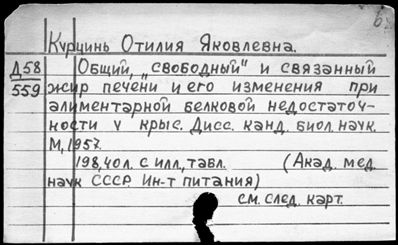 Курцинь Отилия Яковлевна.
Д58 Общий, "свободный" и связанный
559 жир печени и его изменения при
алиментарной белковой недостаточ-
ности у крыс. Дисс. канд. биол. наук.
М, 1957.
198, 40 л. с илл, табл. (Акад. мед.
наук СССР. Ин-т питания)
см. след. карт.